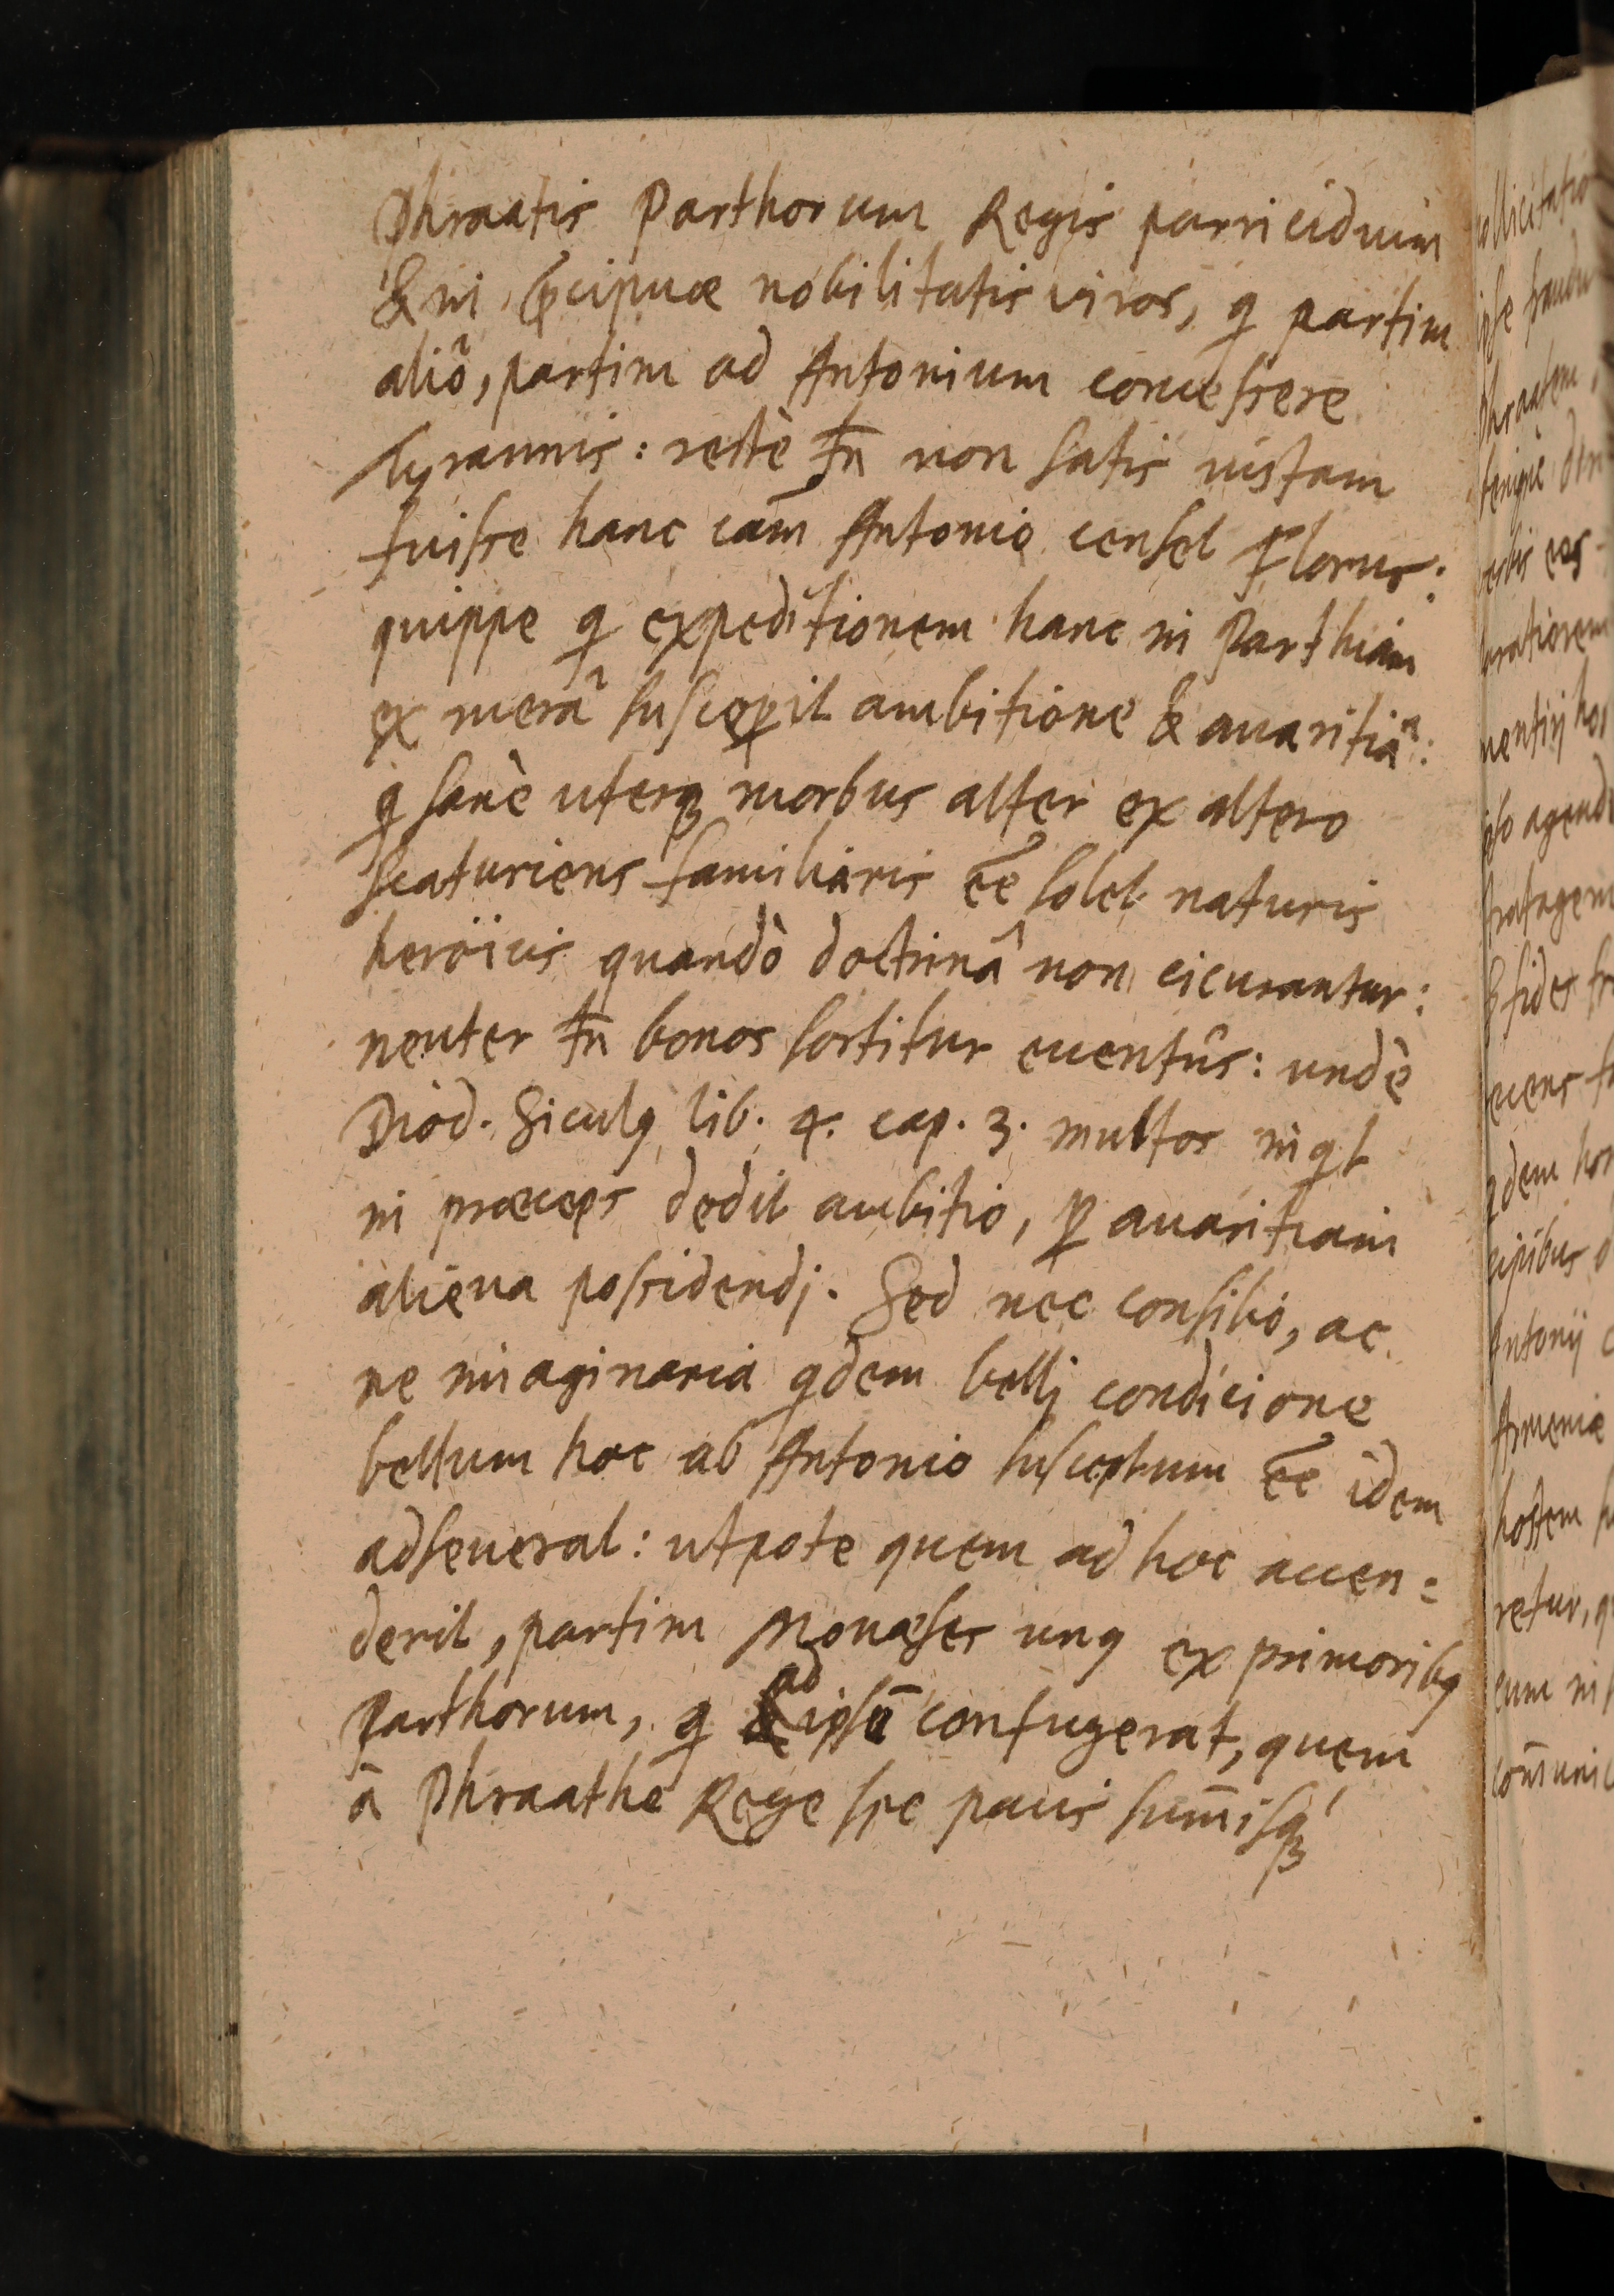 Phraatis Parthorum Regis parricidium
& in p̄cipuæ nobilitatis viros, q partim
aliò, partim ad Antonium concessere
tyrannis: rectè tn̄ non satis iustam
fuisse hanc cam̄ Antonio censet Florus:
quippe q expeditionem hanc in Parthiam
ex merâ suscepit ambitione & auaritiâ:
q sanè uterq; morbus alter ex altero
scaturiens familiaris ee̅ solet naturis
heroicis quandò doctrinâ non cicurantur:
neuter tn̄ bonos sortitur euentûs: undè
Diod. Siculq lib. 4. cap. 3. multos inqt
in præceps dedit ambitio, ꝑ auaritiam
aliena possidendj. Sed nec consilio, ac
ne imaginaria qdem bellj condicione
bellum hoc ab Antonio susceptum ee̅ idem
adseuerat: utpote quem ad hoc accen=
derit, partim Monæses unq ex primoribq
Parthorum, q ad ipsū confugerat, quem
à Phraathe Rege spe pacis sum̄isq;
ollicitatio
ipse
Phraatem,
benignè
verbis eos
orationem
uentij hos
agend
& fides
qdem hon
cipibus
Antonij
Armeniæ
hostem
retur, q
eum in
com̄unic